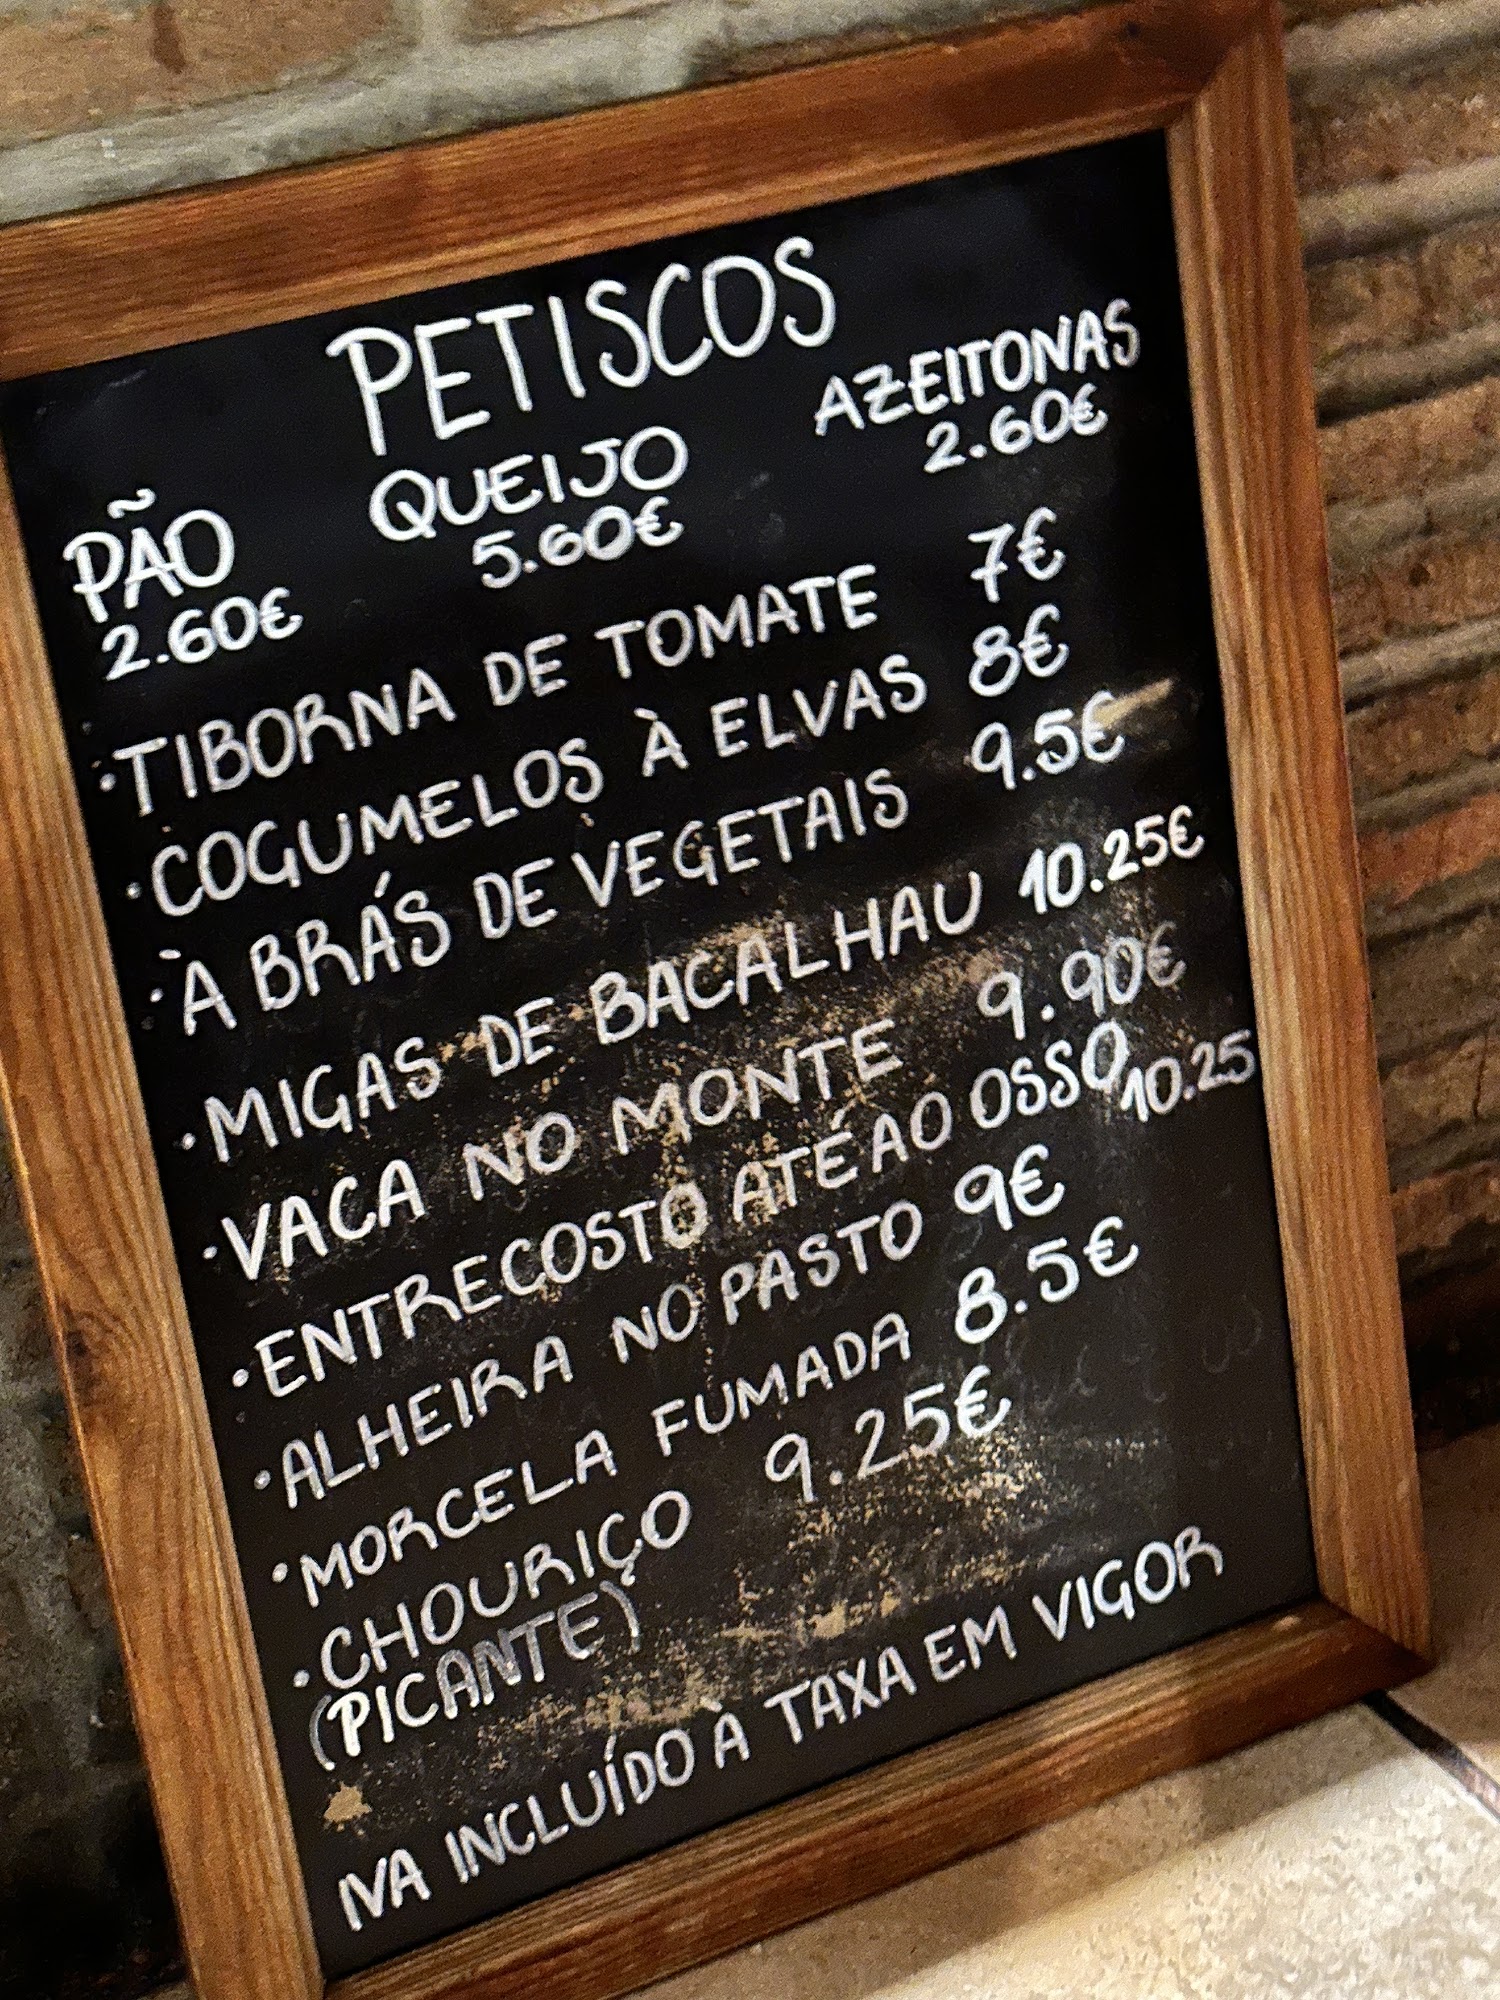 PETISCOS
PÃO QUEIJO AZEITONAS
2.60€ 5.60€ 2.60€
·TIBORNA DE TOMATE 7€
·COGUMELOS À ELVAS 8€
·À BRÁS DE VEGETAIS 9.5€
·MIGAS DE BACALHAU 10.25€
·VACA NO MONTE 9.90€
·ENTRECOSTO ATÉ AO OSSO 10.25
·ALHEIRA NO PASTO 9€
·MORCELA FUMADA 8.5€
·CHOURIÇO 9.25€
(PICANTE)
IVA INCLUÍDO À TAXA EM VIGOR